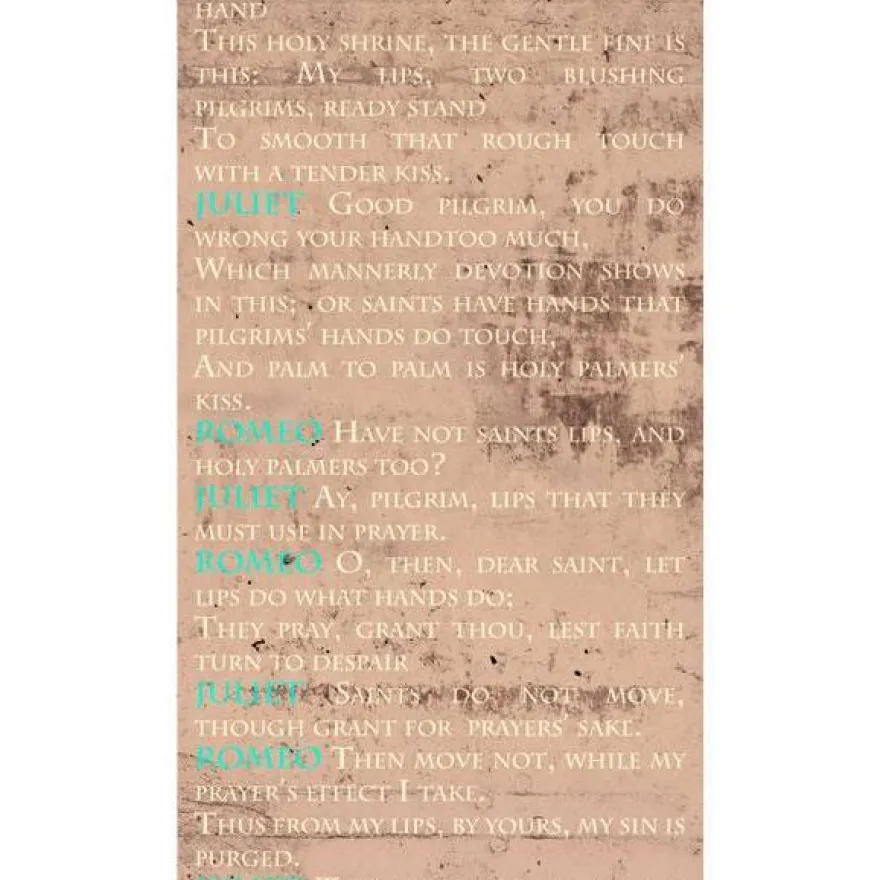 HAND
THIS HOLY SHRINE, THE GENTLE FINE IS
THIS: MY LIPS, TWO BLUSHING
PILGRIMS, READY STAND
TO SMOOTH THAT ROUGH TOUCH
WITH A TENDER KISS.
JULIET GOOD PILGRIM, YOU DO
WRONG YOUR HANDTOO MUCH,
WHICH MANNERLY DEVOTION SHOWS
IN THIS; OR SAINTS HAVE HANDS THAT
PILGRIMS' HANDS DO TOUCH,
AND PALM TO PALM IS HOLY PALMERS'
KISS.
ROMEO HAVE NOT SAINTS LIPS, AND
HOLY PALMERS TOO?
JULIET AY, PILGRIM, LIPS THAT THEY
MUST USE IN PRAYER.
ROMEO O, THEN, DEAR SAINT, LET
LIPS DO WHAT HANDS DO;
THEY PRAY, GRANT THOU, LEST FAITH
TURN TO DESPAIR
JULIET SAINTS DO NOT MOVE,
THOUGH GRANT FOR PRAYERS' SAKE.
ROMEO THEN MOVE NOT, WHILE MY
PRAYER'S EFFECT I TAKE.
THUS FROM MY LIPS, BY YOURS, MY SIN IS
PURGED.